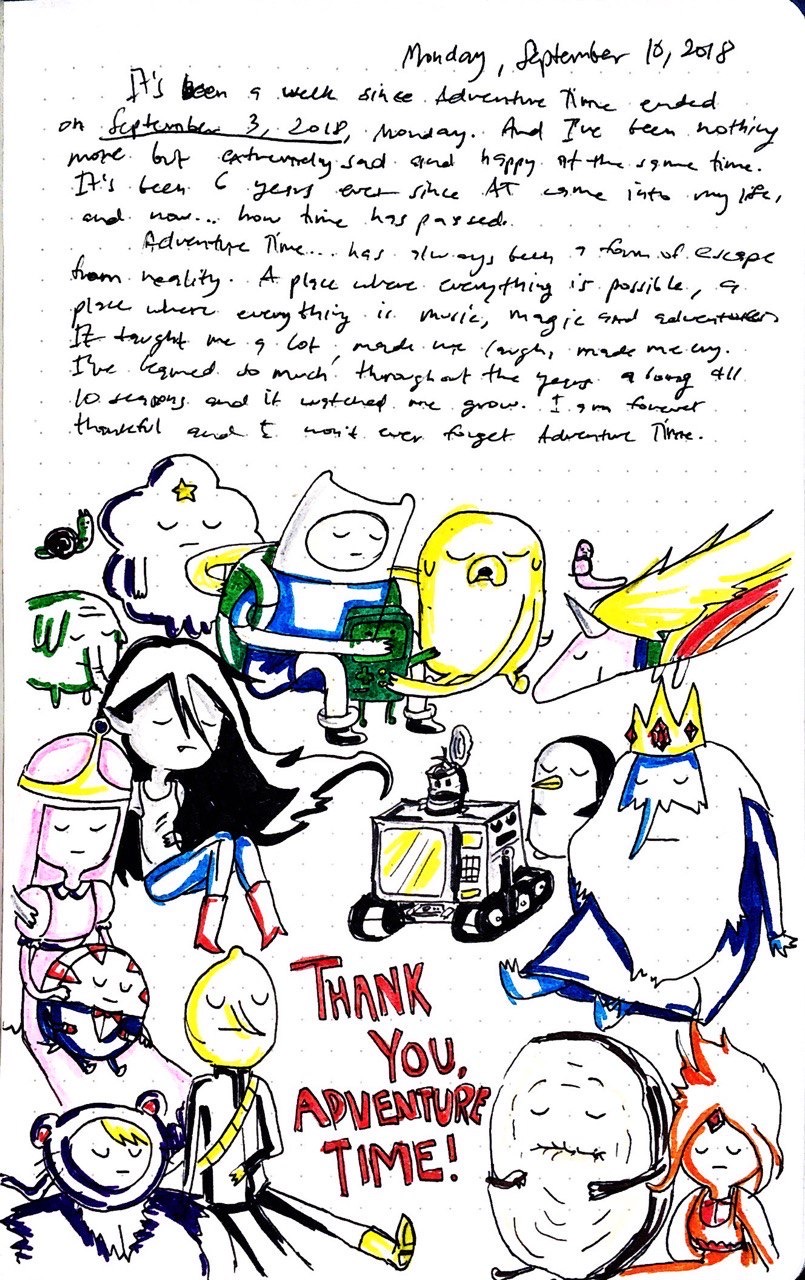 Monday, September 10, 2018
It's been a week since Adventure Time ended
on September 3, 2018, Monday. And I've been nothing
more but extremely sad and happy at the same time.
It's been 6 years ever since AT came into my life,
and now... how time has passed.
Adventure Time... has always been a form of escape
from reality. A place where everything is possible, a
place where everything is music, magic and adventures
It taught me a lot, made me laugh, made me cry.
I've learned so much throughout the years along all
10 seasons and it watched me grow. I am forever
thankful and I won't ever forget Adventure Time.
THANK
YOU,
ADVENTURE
TIME!